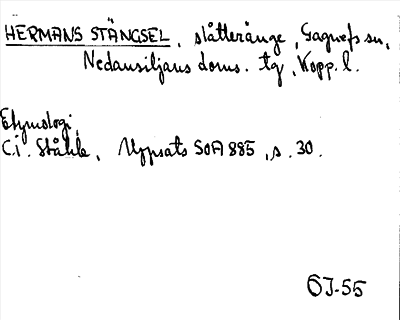 HERMANS STÄNGSEL, slåtteränge, Gagnefs sn,
Nedansiljans doms. tg, Kopp. l.
Etymologi,
C.I. Ståhle, Uppsats SOA 885, s. 30.
ÖJ-55